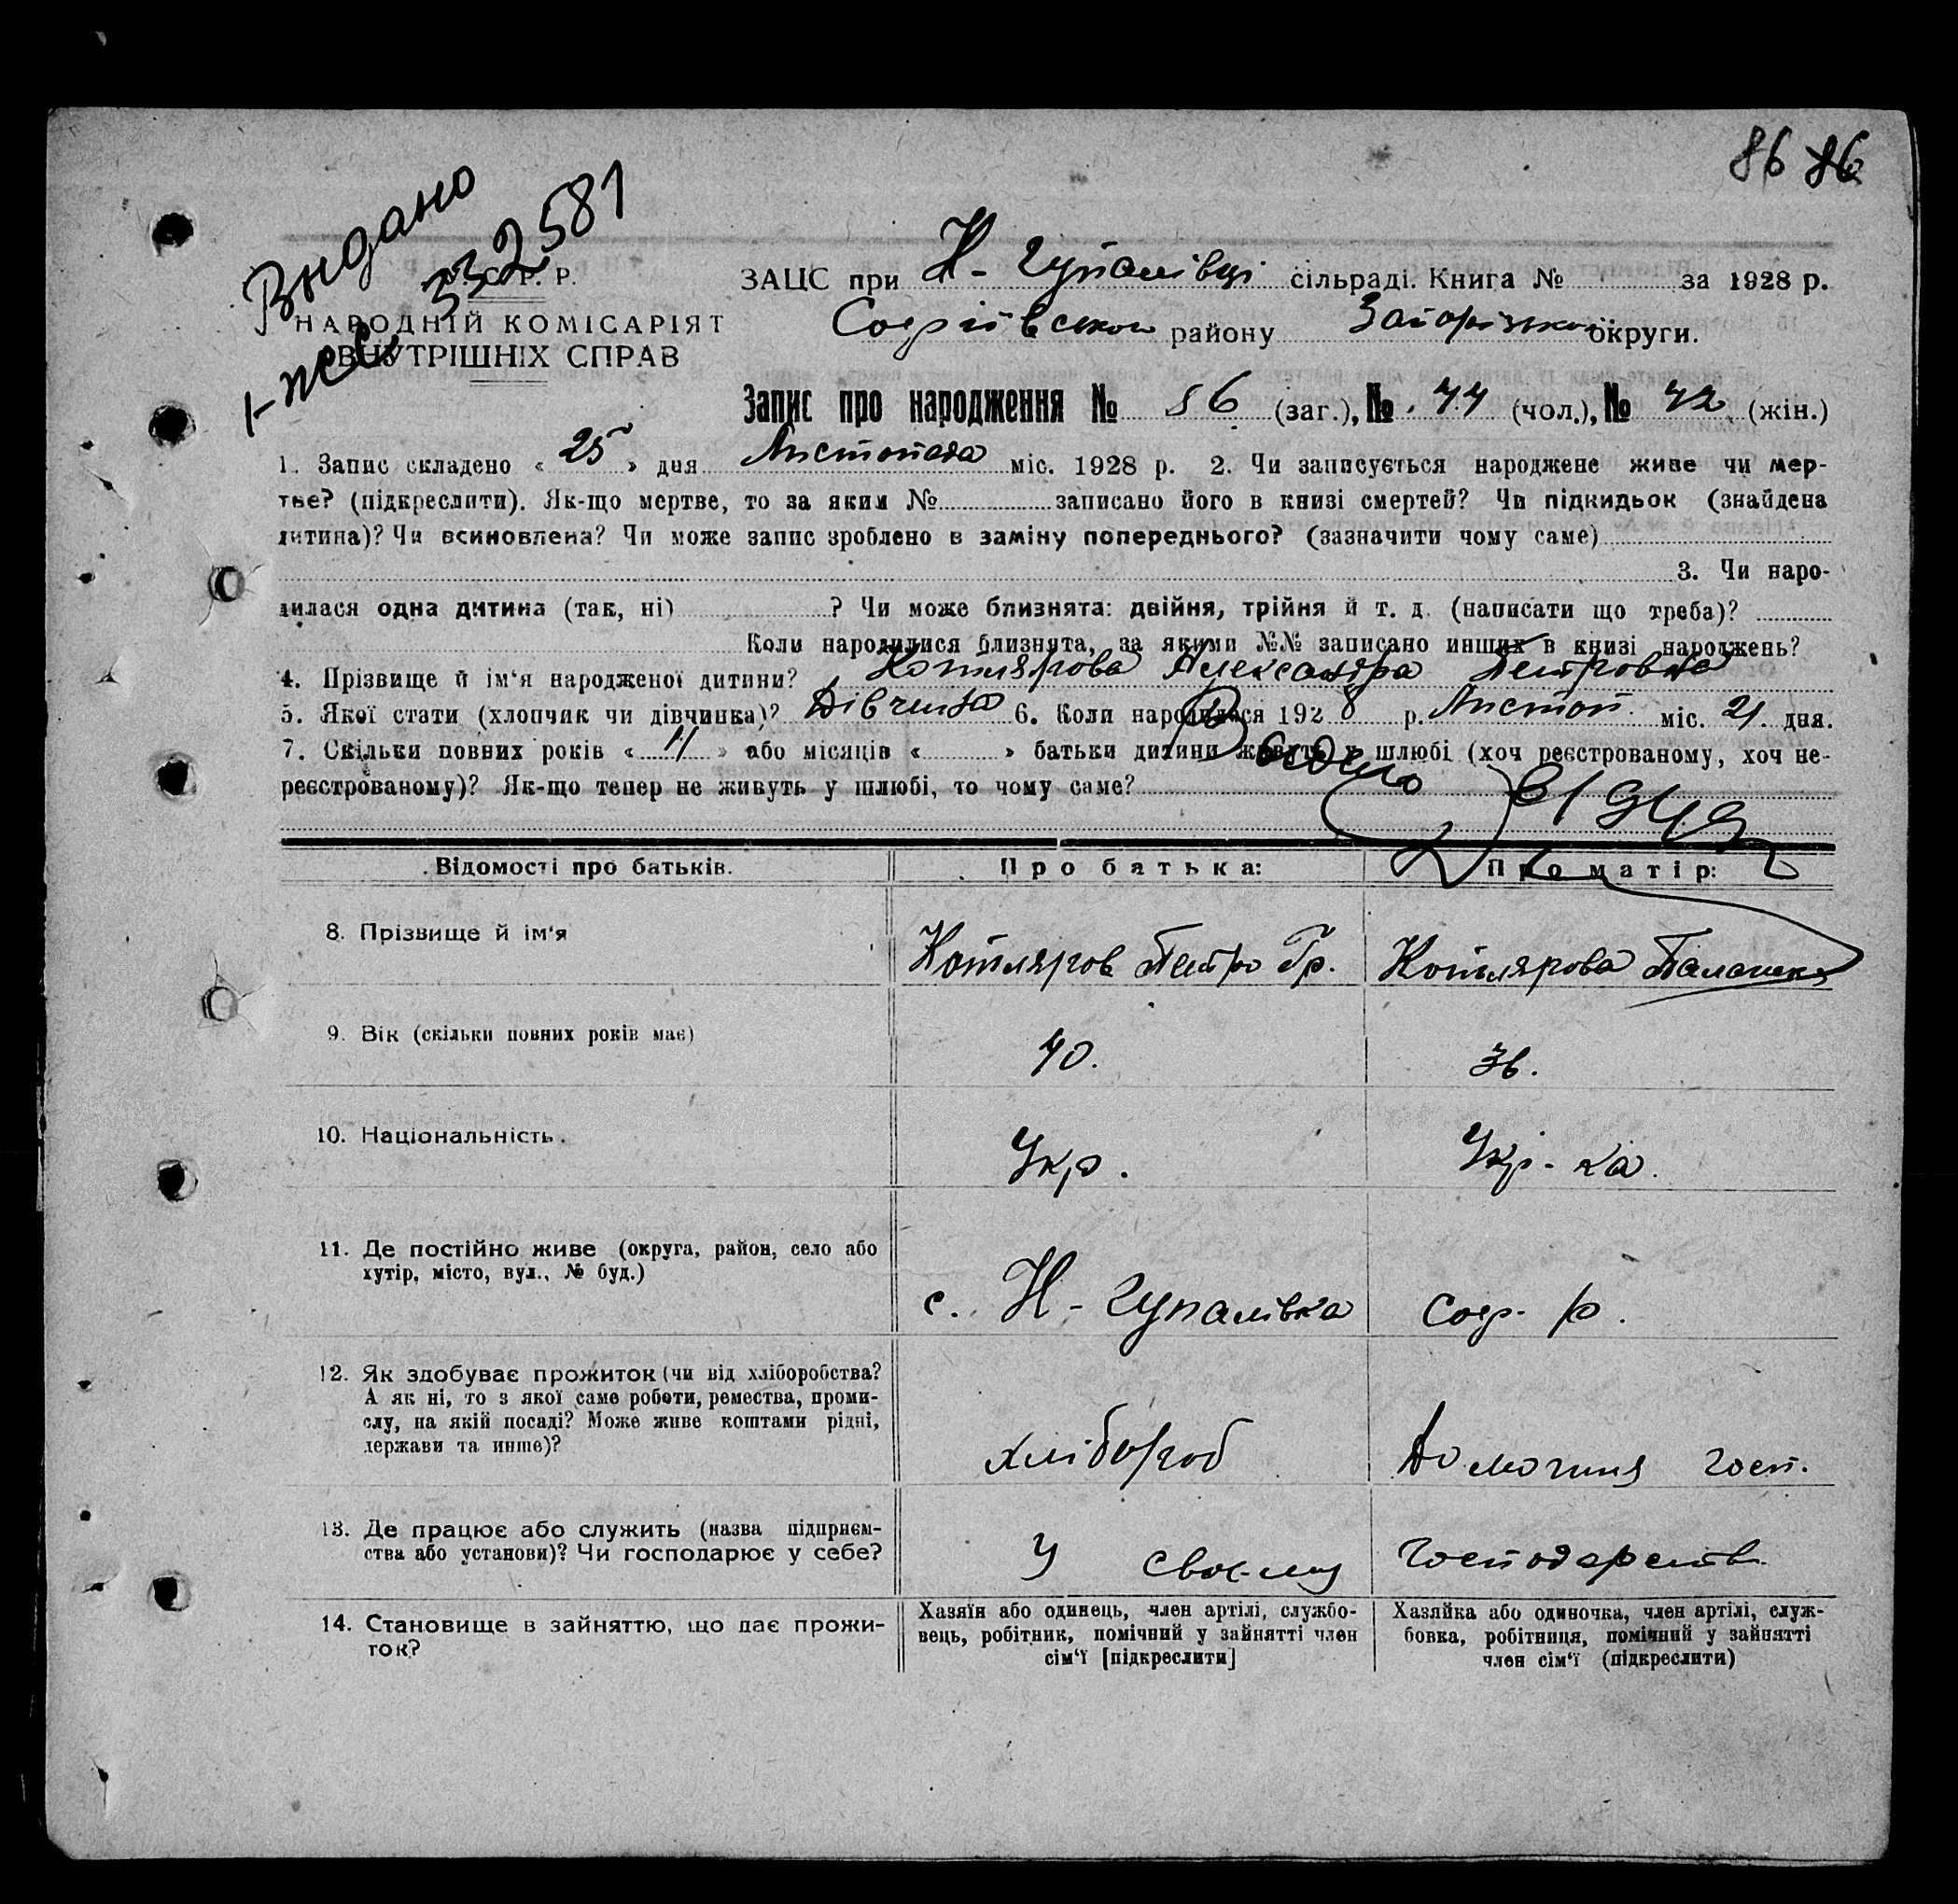 86 86
Видано
332581
С. Р. Р.
НАРОДНІЙ КОМІСАРІЯТ
ВНУТРІШНІХ СПРАВ
ЗАЦС при Н-Гупалівці сільраді. Книга № за 1928 р.
Софіївськ району Запорізької округи.
Запис про народження № 86 (заг.), № 44 (чол.), № 42 (жін.)
1. Запис складено « 25 » дня Листопада міс. 1928 р. 2. Чи записується народжене живе чи мер-
тве? (підкреслити). Як-що мертве, то за яким № записано його в книзі смертей? Чи підкидьок (знайдена
дитина)? Чи всиновлена? Чи може запис зроблено в заміну попереднього? (зазначити чому саме)
3. Чи наро-
дилася одна дитина (так, ні) ? Чи може близнята: двійня, трійня й т. д. (написати що треба)?
Коли народилися близнята, за якими №№ записано инших в книзі народжень?
4. Прізвище й ім'я народженої дитини? Котлярова Александра Петровна
5. Якої стати (хлопчик чи дівчинка)? Дівчинка 6. Коли народилося 1928 р. Листоп. міс. 21 дня.
7. Скільки повних років « 11 » або місяців « » батьки дитини живуть у шлюбі (хоч реєстрованому, хоч не-
реєстрованому)? Як-що тепер не живуть у шлюбі, то чому саме?
Відомості про батьків. Про батька: Про матір:
8. Прізвище й ім'я Котляров Петро Гр. Котлярова Палажка
9. Вік (скільки повних років має) 40. 36.
10. Національність. Укр. Укр-ка.
11. Де постійно живе (округа, район, село або
хутір, місто, вул., № буд.) с. Н-Гупалівка Соф. р.
12. Як здобуває прожиток (чи від хліборобства?
А як ні, то з якої саме роботи, ремества, проми-
слу, на якій посаді? Може живе коштами рідні,
держави та инше)? хлібороб Домашня госп.
13. Де працює або служить (назва підприєм-
ства або установи)? Чи господарює у себе? У своєму господарстві
14. Становище в зайняттю, що дає прожи-
ток?
Хазяїн або одинець, член артілі, службо-
вець, робітник, помічний у зайнятті член
сім'ї [підкреслити]
Хазяйка або одиночка, член артілі, служ-
бовка, робітниця, помічний у зайнятті
член сім'ї (підкреслити)